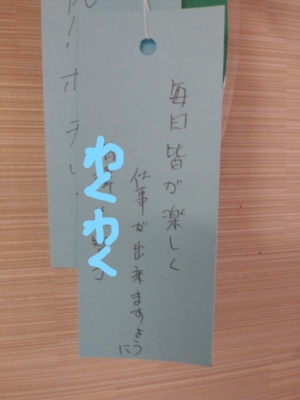 毎日皆が楽しく
仕事が出来ますように
わくわく
ホテ